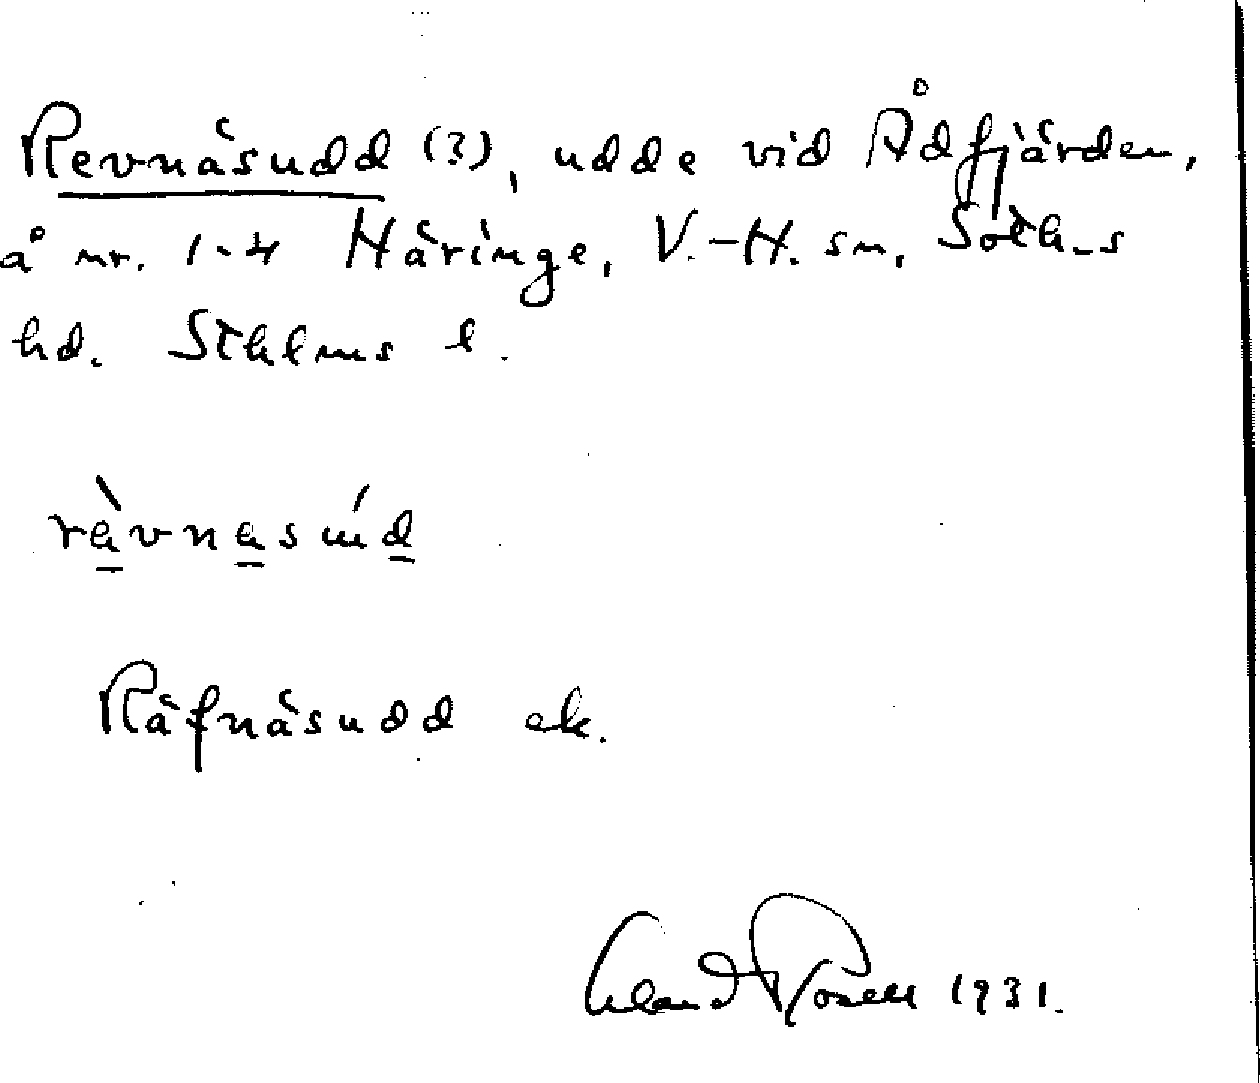 Revnäsudd (?), udde vid Ådfjärden,
å nr. 1-4 Häringe, V.-H. sn, Soth-s
hd. Sthlms l.
rèvnasúd
Räfnäsudd ek.
Erland Rosell 1931.